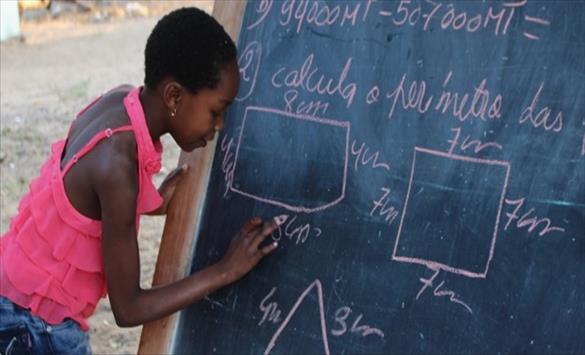 b) 94000MT - 507000MT =
2) calcula o perímetro das
8cm
4cm
4cm
8cm
7cm
7cm
7cm
7cm
4m
3cm